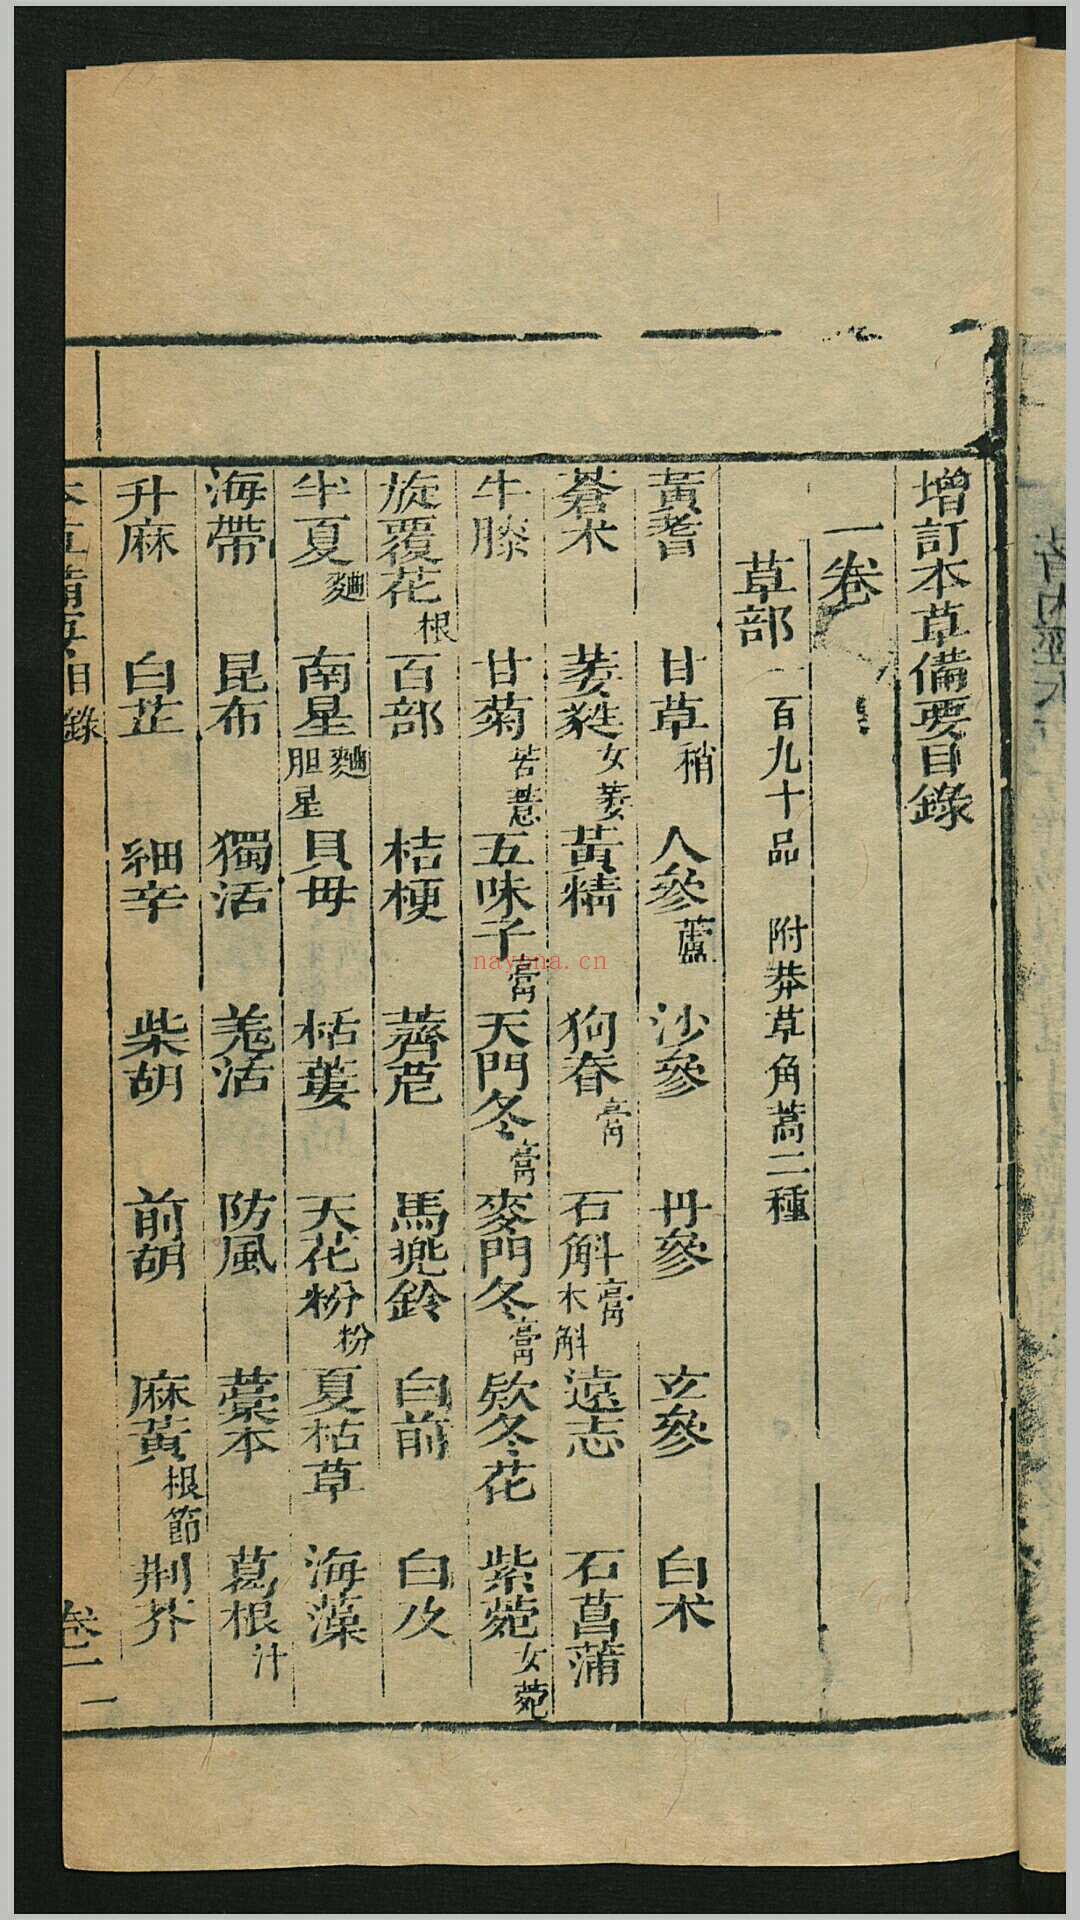 增訂本草備要目錄
一卷
草部 一百九十品 附莽草角蒿二種
黃耆 甘草稍 人參蘆 沙參 丹參 玄參 白朮
蒼朮 萎蕤女萎 黃精 狗脊膏 石斛膏木斛 遠志 石菖蒲
牛膝 甘菊苦薏 五味子膏 天門冬膏 麥門冬膏 欵冬花 紫菀女菀
旋覆花根 百部 桔梗 薺苨 馬兜鈴 白前 白及
半夏麯 南星麯胆星 貝母 栝蔞 天花粉粉 夏枯草 海藻
海帶 昆布 獨活 羗活 防風 藁本 葛根汁
升麻 白芷 細辛 柴胡 前胡 麻黃根節 荆芥
目錄
nayona.cn